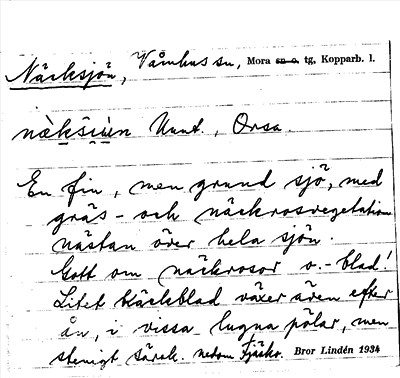 Näcksjön, Våmhus sn, Mora sn o. tg, Kopparb. l.
næ̀ksi̯ùn Unnt., Orsa.
En fin, men grund sjö, med
gräs- och näckrosvegetation
nästan över hela sjön.
Gott om näckrosor o.- blad!
Litet käckblad växer även efter
ån, i vissa lugna pölar, men
stenigt särsk. nedom Fjäskr. Bror Lindén 1934